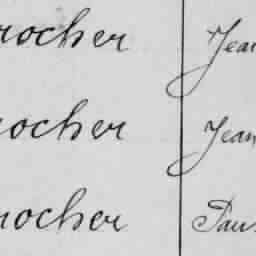 rocher Jean
rocher Jean
rocher Paul